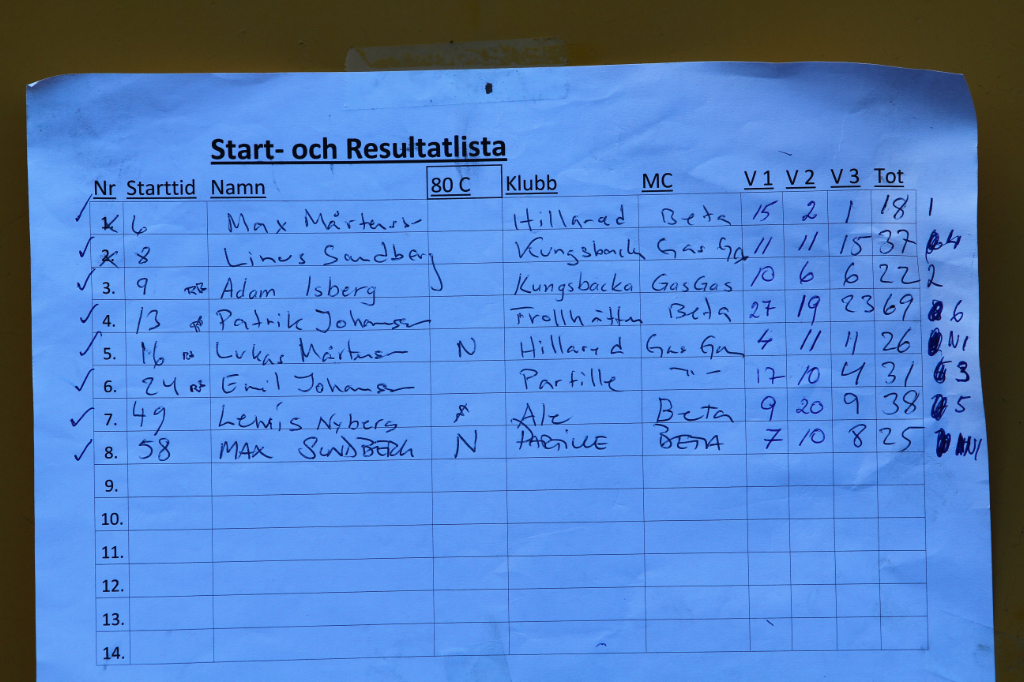 Start- och Resultatlista
Nr Starttid Namn 80 C Klubb MC V 1 V 2 V 3 Tot
1. 6 Max Mårtensson Hillarad Beta 15 2 1 18 1
2. 8 Linus Sandberg Kungsback Gas Ga 11 11 15 37 4
3. 9 Adam Isberg Kungsbacka GasGas 10 6 6 22 2
4. 13 Patrik Johansson Trollhättan Beta 27 19 23 69 6
5. 16 Lukas Mårtensson N Hillard Gas Ga 4 11 11 26 N1
6. 24 Emil Johansson Partille -"- 17 10 4 31 3
7. 49 Lewis Nyberg Ale Beta 9 20 9 38 5
8. 58 MAX SUNDBERG N PARTILLE BETA 7 10 8 25
9.
10.
11.
12.
13.
14.